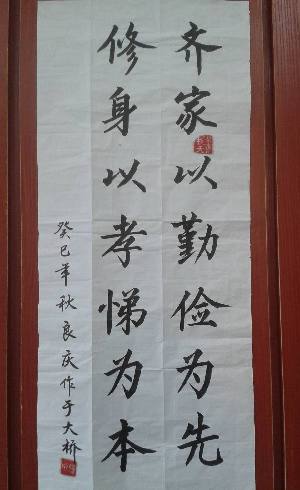 齐家以勤俭为先
修身以孝悌为本
癸巳年秋良庆作于大桥